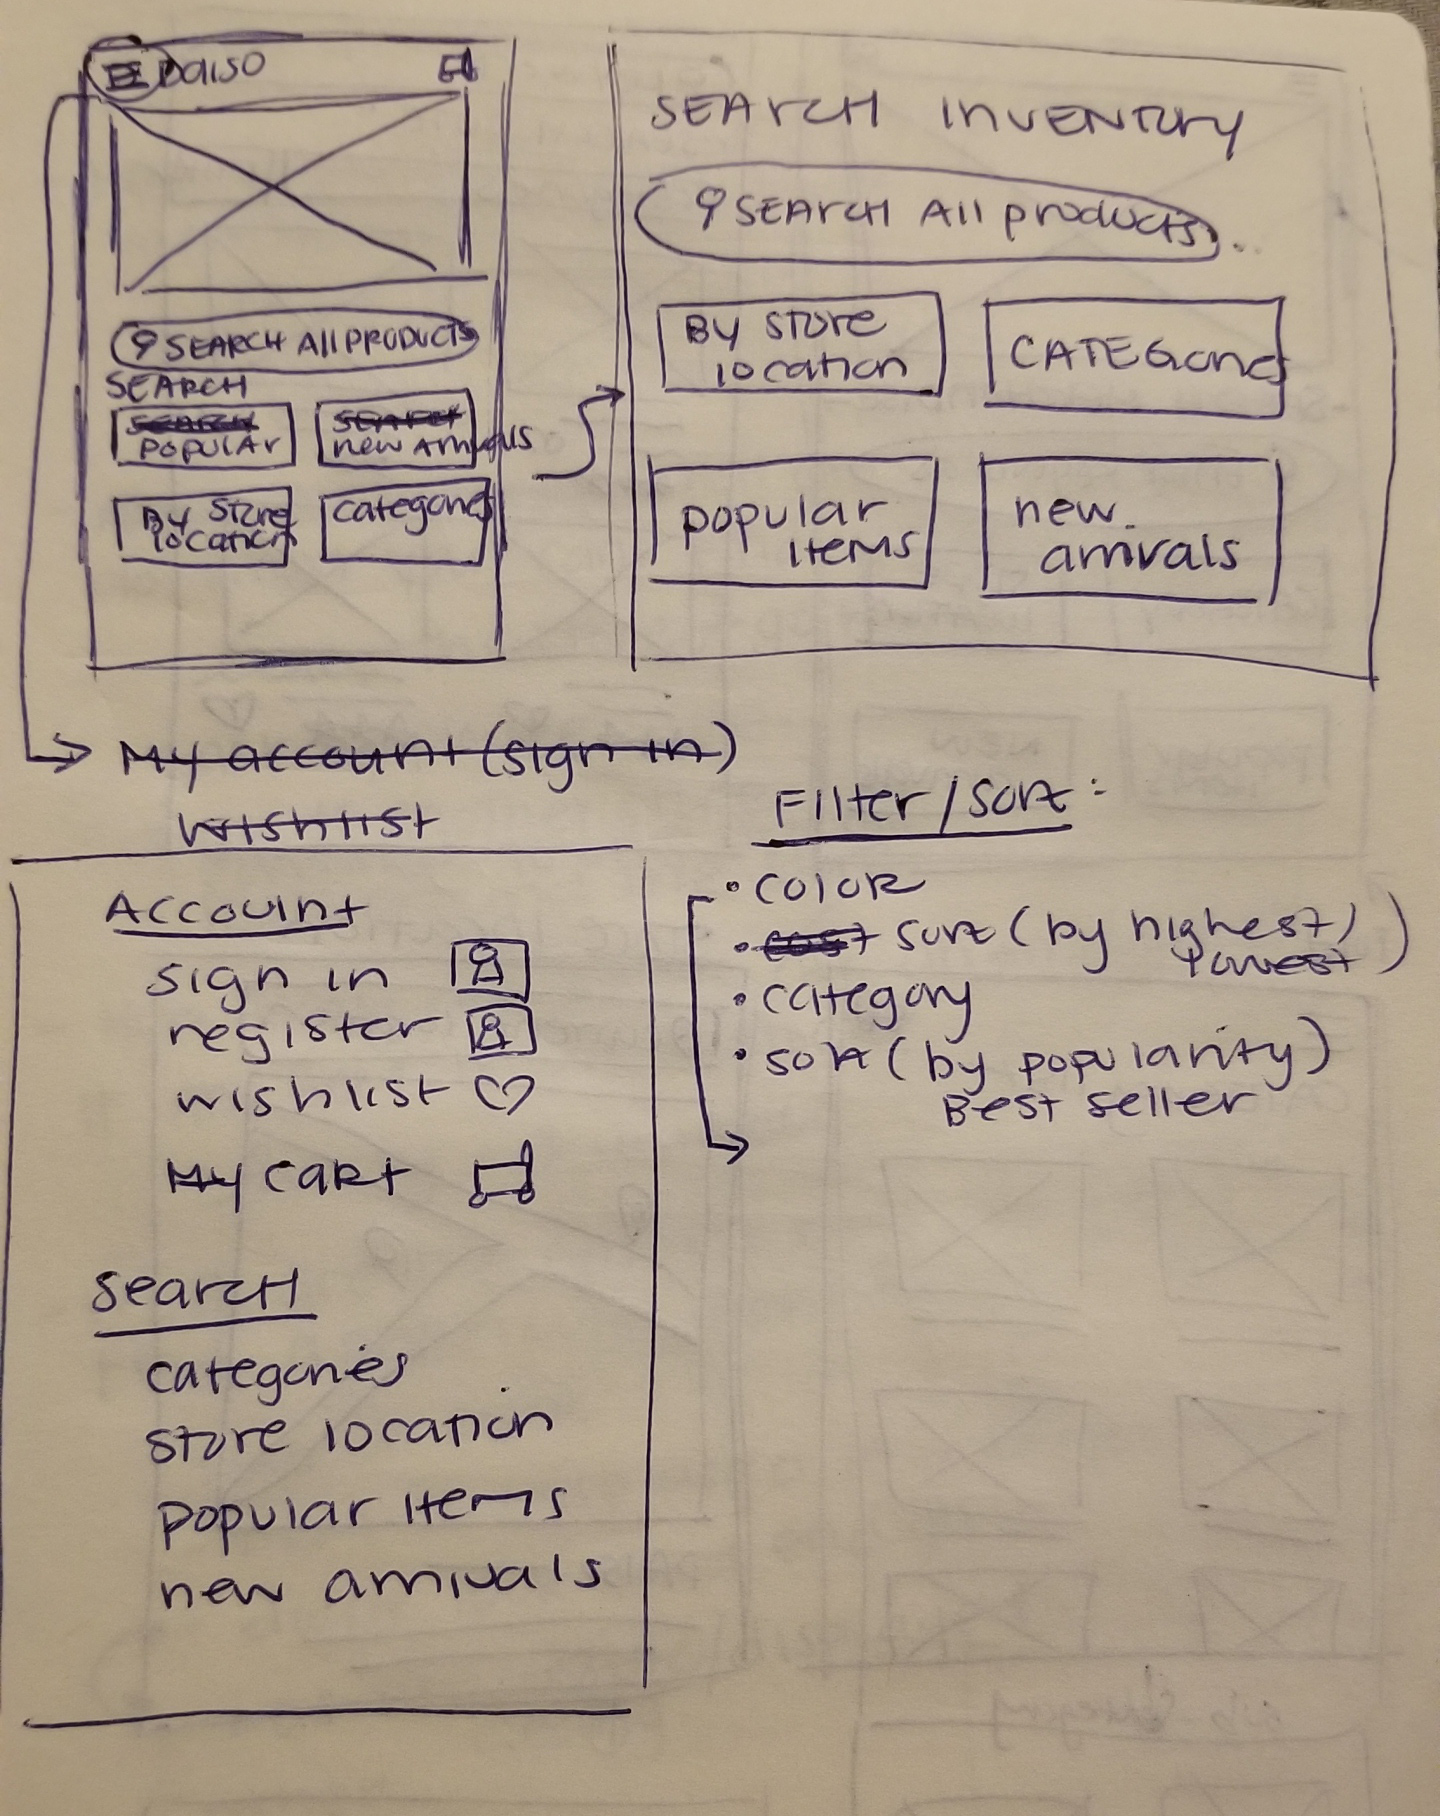 Daiso
SEARCH All PRODUCTS
SEARCH
SEARCH
POPULAR
SEARCH
new arrivals
By store
location
categories
SEARCH INVENTORY
SEARCH All products...
By store
location
CATEGORIES
popular
items
new
arrivals
My account (sign in)
wishlist
Account
sign in
register
wishlist
My cart
search
categories
store location
popular items
new arrivals
Filter/Sort:
• COLOR
• cost sort (by highest/
lowest)
• category
• sort (by popularity)
Best seller